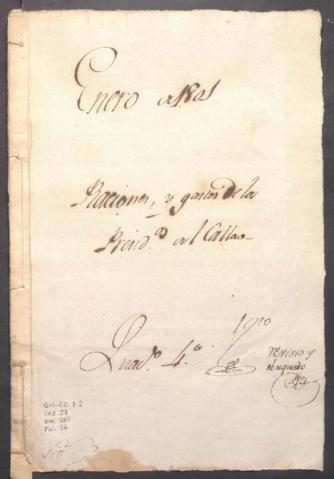 Enero de 1801
Raciones, y gastos de la
Presid.ª del Callao
Quad.º 4.º
Revisto y
GM-CO 3-2
CAJ. 27
DOC. 269
Fol. 36